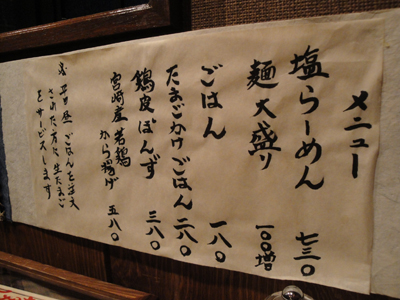 メニュー
塩らーめん 七三〇
麺大盛り 一〇〇増
ごはん 一八〇
たまごかけごはん 二八〇
鶏皮ぽんず 三八〇
宮崎産若鶏
から揚げ 五八〇
平日昼ごはんを注文
された方に、生たまご
をサービスします